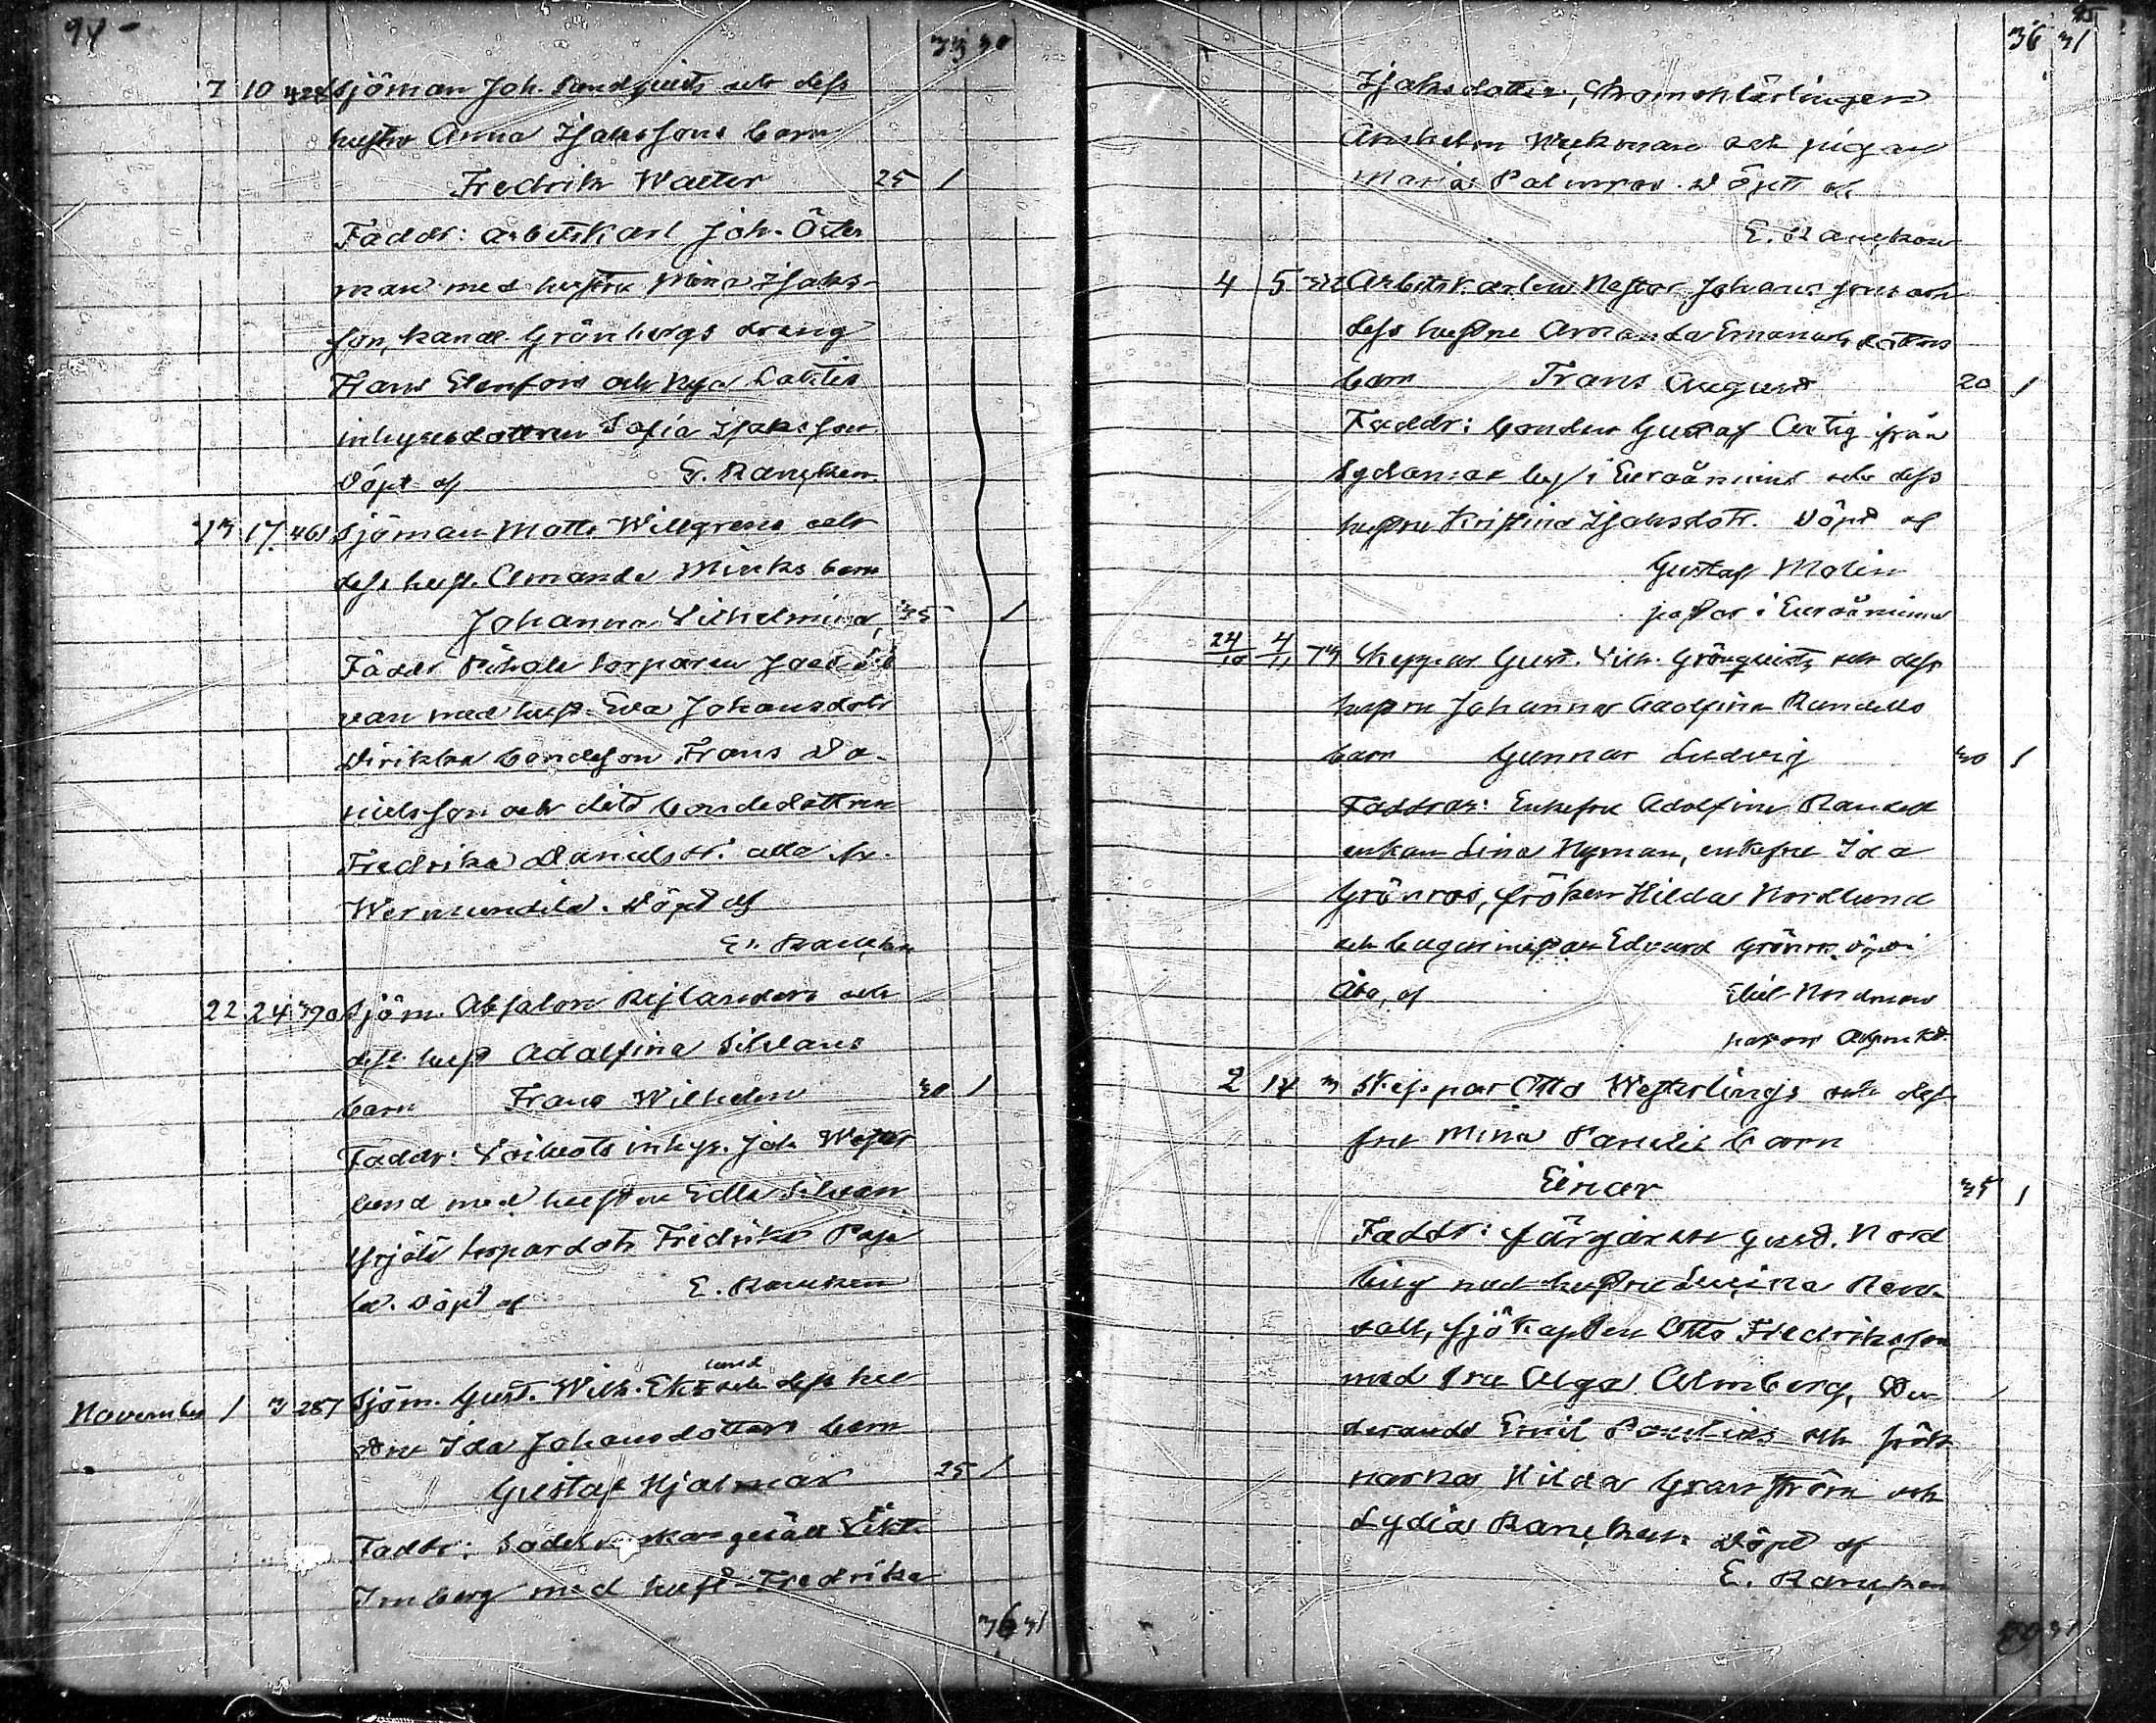 94
33 30
7 10 424 Sjöman Joh. Sundqvists och dess
hustru Anna Isakssons barn
Fredrik Walter 25 1
Faddr: arbetskarl Joh. Öster
man med hustru Mina Isaks-
son, handl. Grönbergs dreng
Frans Elenfors och
inhysesdottren Sofia Isaksson
Döpt af E. Rancken
13 17 461 Sjöman Matts Willgrens och
dess hust. Amanda Minks barn
Johanna Vilhelmina, 35 1
Faddr Pihale torparen
van med hust. Eva Johansdotr
bondeson Frans Da-
nielsson och dito bondedottren
Fredrika Danielsdr. alla fr.
Wermuntila. Döpt af
E. Rancken
22 24 390 Sjöm. Absalon Rejlanders och
dess hust Adolfina Silvans
barn Frans Wilhelm 30 1
Faddr: inhys. Joh Wester
lund med hustru Edla Silvan
torpardotr Fredrika
Döpt af E. Rancken
lund
November 1 3 287 Sjöm. Gust. Wilh. Ek och dess hu
stru Ida Johansdotters barn
Gustaf Hjalmar 25 1
Faddr: gesäll Vikt.
Imberg med hust. Fredrika
36 31
95
36 31
Isaksdotter,
Anshelm Wickman och pigan
Maria Palmros. Döpt af
E. Rancken
4 5 Arbetskarlen Nestor Johanssons och
dess hustru Amanda Emanuelsdotters
barn Frans August 20 1
Faddr: bonden Gustaf Antig från
by i Euraåminne och dess
hustru Kristina Isaksdotr. Döpt af
Gustaf Molin
pastor i Euraåminne
24/10 4/11 73 Skeppar Gust. Vilh. Grönqvists och dess
hustru Johanna Adolfina Randells
barn Gunnar Ludvig 30 1
Faddrar: Enkefru Adolfina Randell
enkan Lina Nyman, enkefru Ida
Grönros, fröken Hilda Nordlund
och Edvard Grönros. Döpt i
Åbo, af Nordman
2 14 3 Skeppar Otto Westerlings och dess
fru Mina Paulins barn
Einar 35 1
Faddr: färgaren Gust. Nord
ling med hustru Lucina Ran-
dall, sjökapten Otto Fredriksson
med fru Olga Almberg, Stu-
derande Emil Paulin och frök
narna Hilda Granström och
Lydia Rancken. Döpt af
E. Rancken
39 31